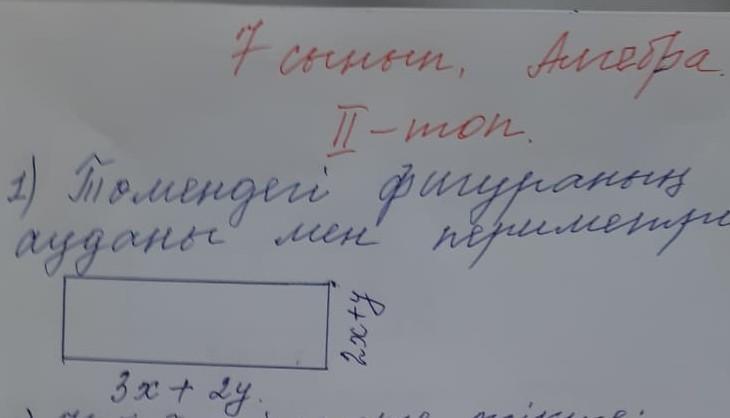 7 сынып, Алгебра.
II-топ.
1) Төмендегі фигураның
ауданы мен периметрі
2x+y
3x + 2y.